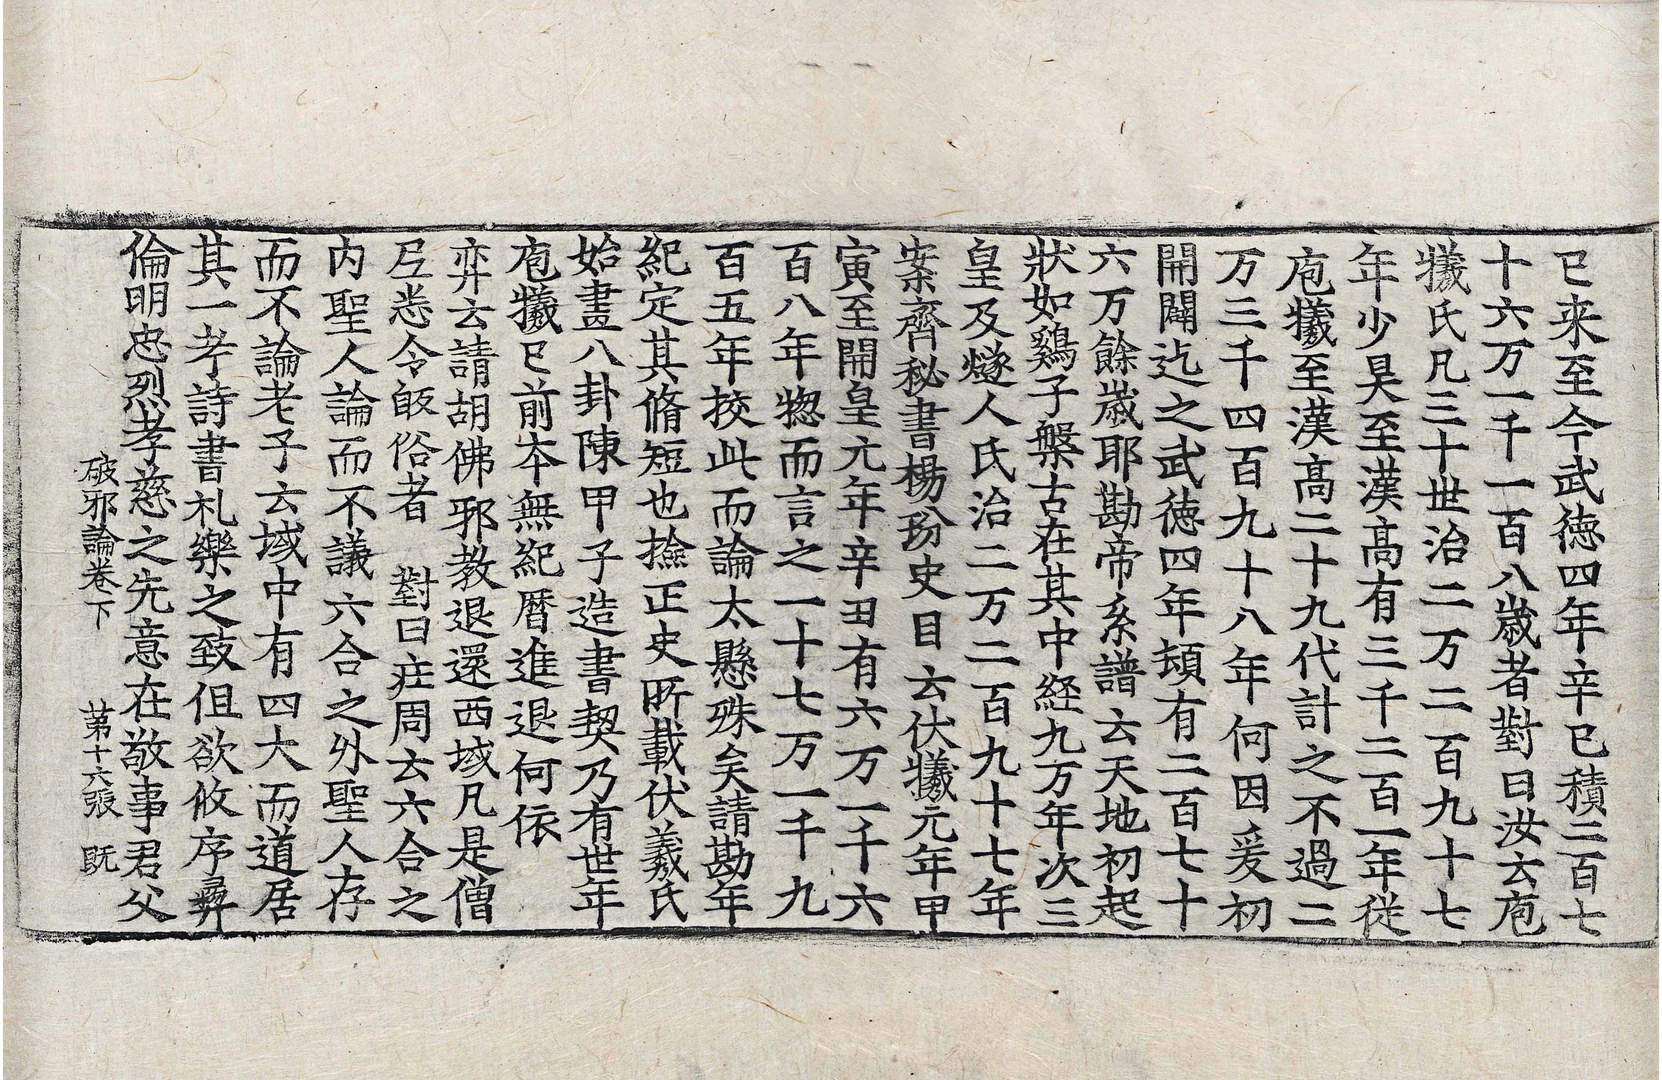 已来至今武德四年辛巳積二百七
十六万一千一百八歲者對曰汝云庖
犧氏凡三十世治二万二百九十七
年少昊至漢高有三千二百一年從
庖犧至漢高二十九代計之不過二
万三千四百九十八年何因爰初
開闢迄之武德四年頓有二百七十
六万餘歲耶勘帝系譜云天地初起
狀如鷄子槃古在其中経九万年次三
皇及燧人氏治二万二百九十七年
案齊秘書楊玢史目云伏犧元年甲
寅至開皇元年辛丑有六万一千六
百八年揔而言之一十七万一千九
百五年挍此而論太懸殊矣請勘年
紀定其脩短也撿正史所載伏羲氏
始畫八卦陳甲子造書契乃有世年
庖犧已前本無紀曆進退何依
弈云請胡佛邪教退還西域凡是僧
尼悉令皈俗者 對曰莊周云六合之
内聖人論而不議六合之外聖人存
而不論老子云域中有四大而道居
其一考詩書礼樂之致但欲攸序彝
倫明忠烈孝慈之先意在敬事君父
破邪論卷下 第十六張 既